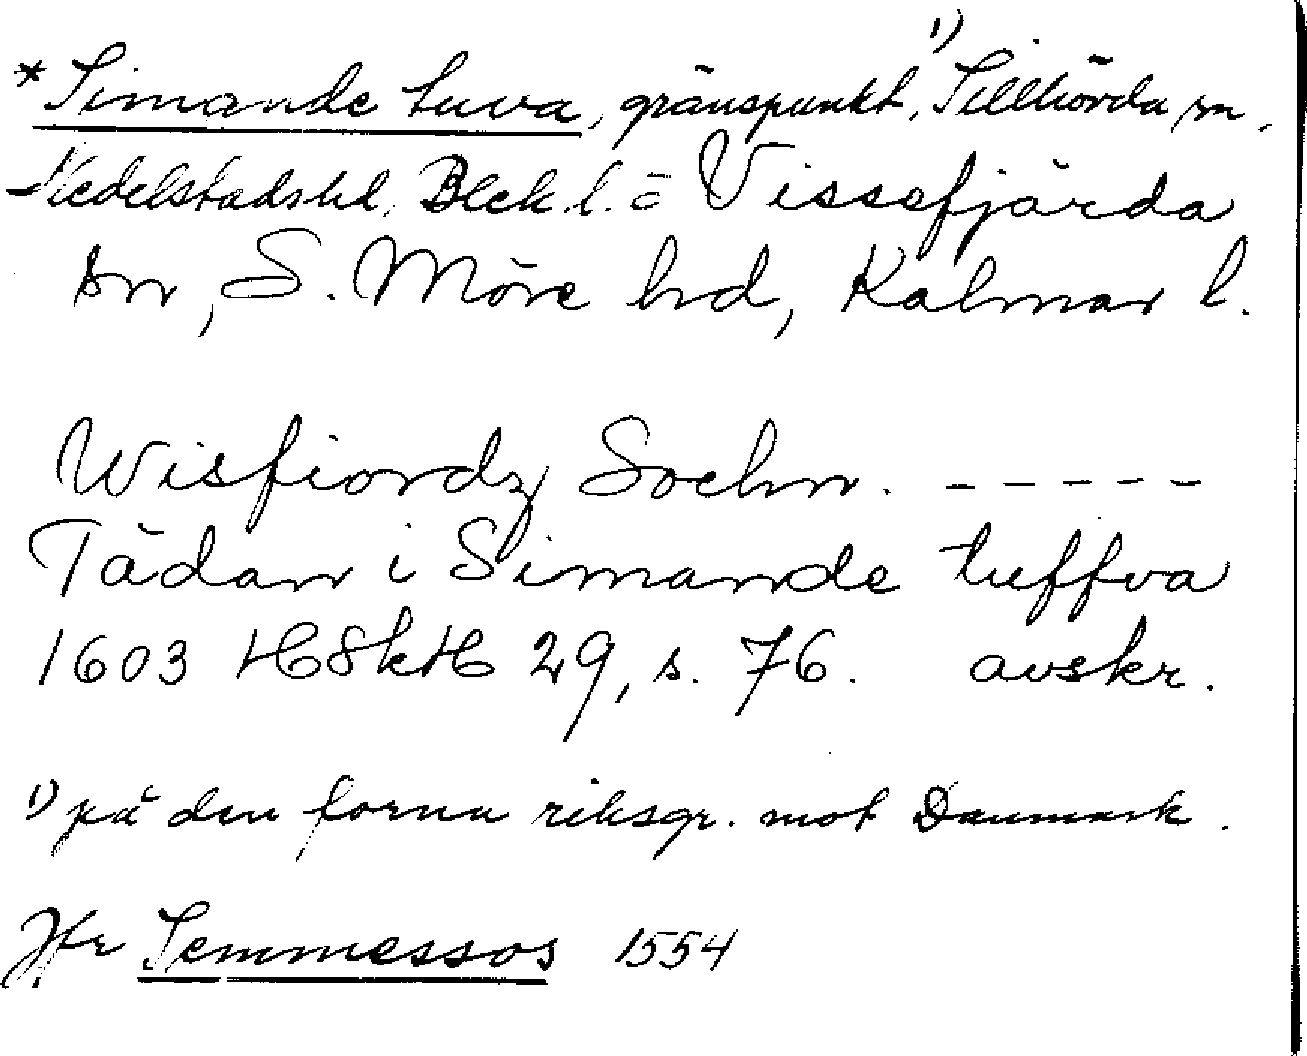 * Simande tuva, gränspunkt, 1) Tillhörda sn.
Medelstads hd, Blek. l. o Vissefjärda
sn, S. Möre hd, Kalmar l.
Wisfiordz Sochn. -----
Tädan i Simande tuffva
1603 HSkH 29, s. 76. avskr.
1) på den forna riksgr. mot Danmark.
Jfr Semmessos 1554